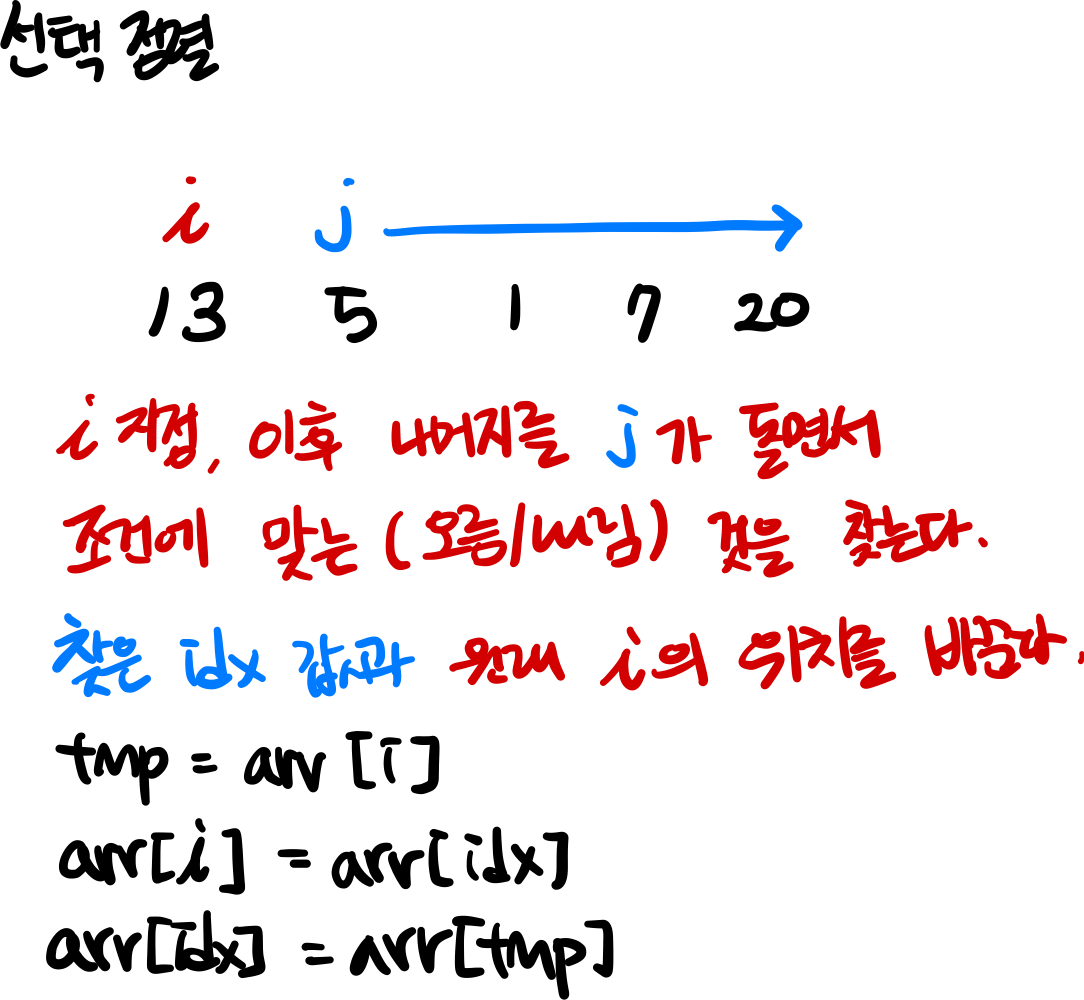 선택 정렬
i j
13 5 1 7 20
i 지점, 이후 나머지를 j가 돌면서
조건에 맞는 (오름/내림) 것을 찾는다.
찾은 idx 값과 원래 i의 위치를 바꾼다.
tmp = arr [i]
arr[i] = arr[idx]
arr[idx] = arr[tmp]